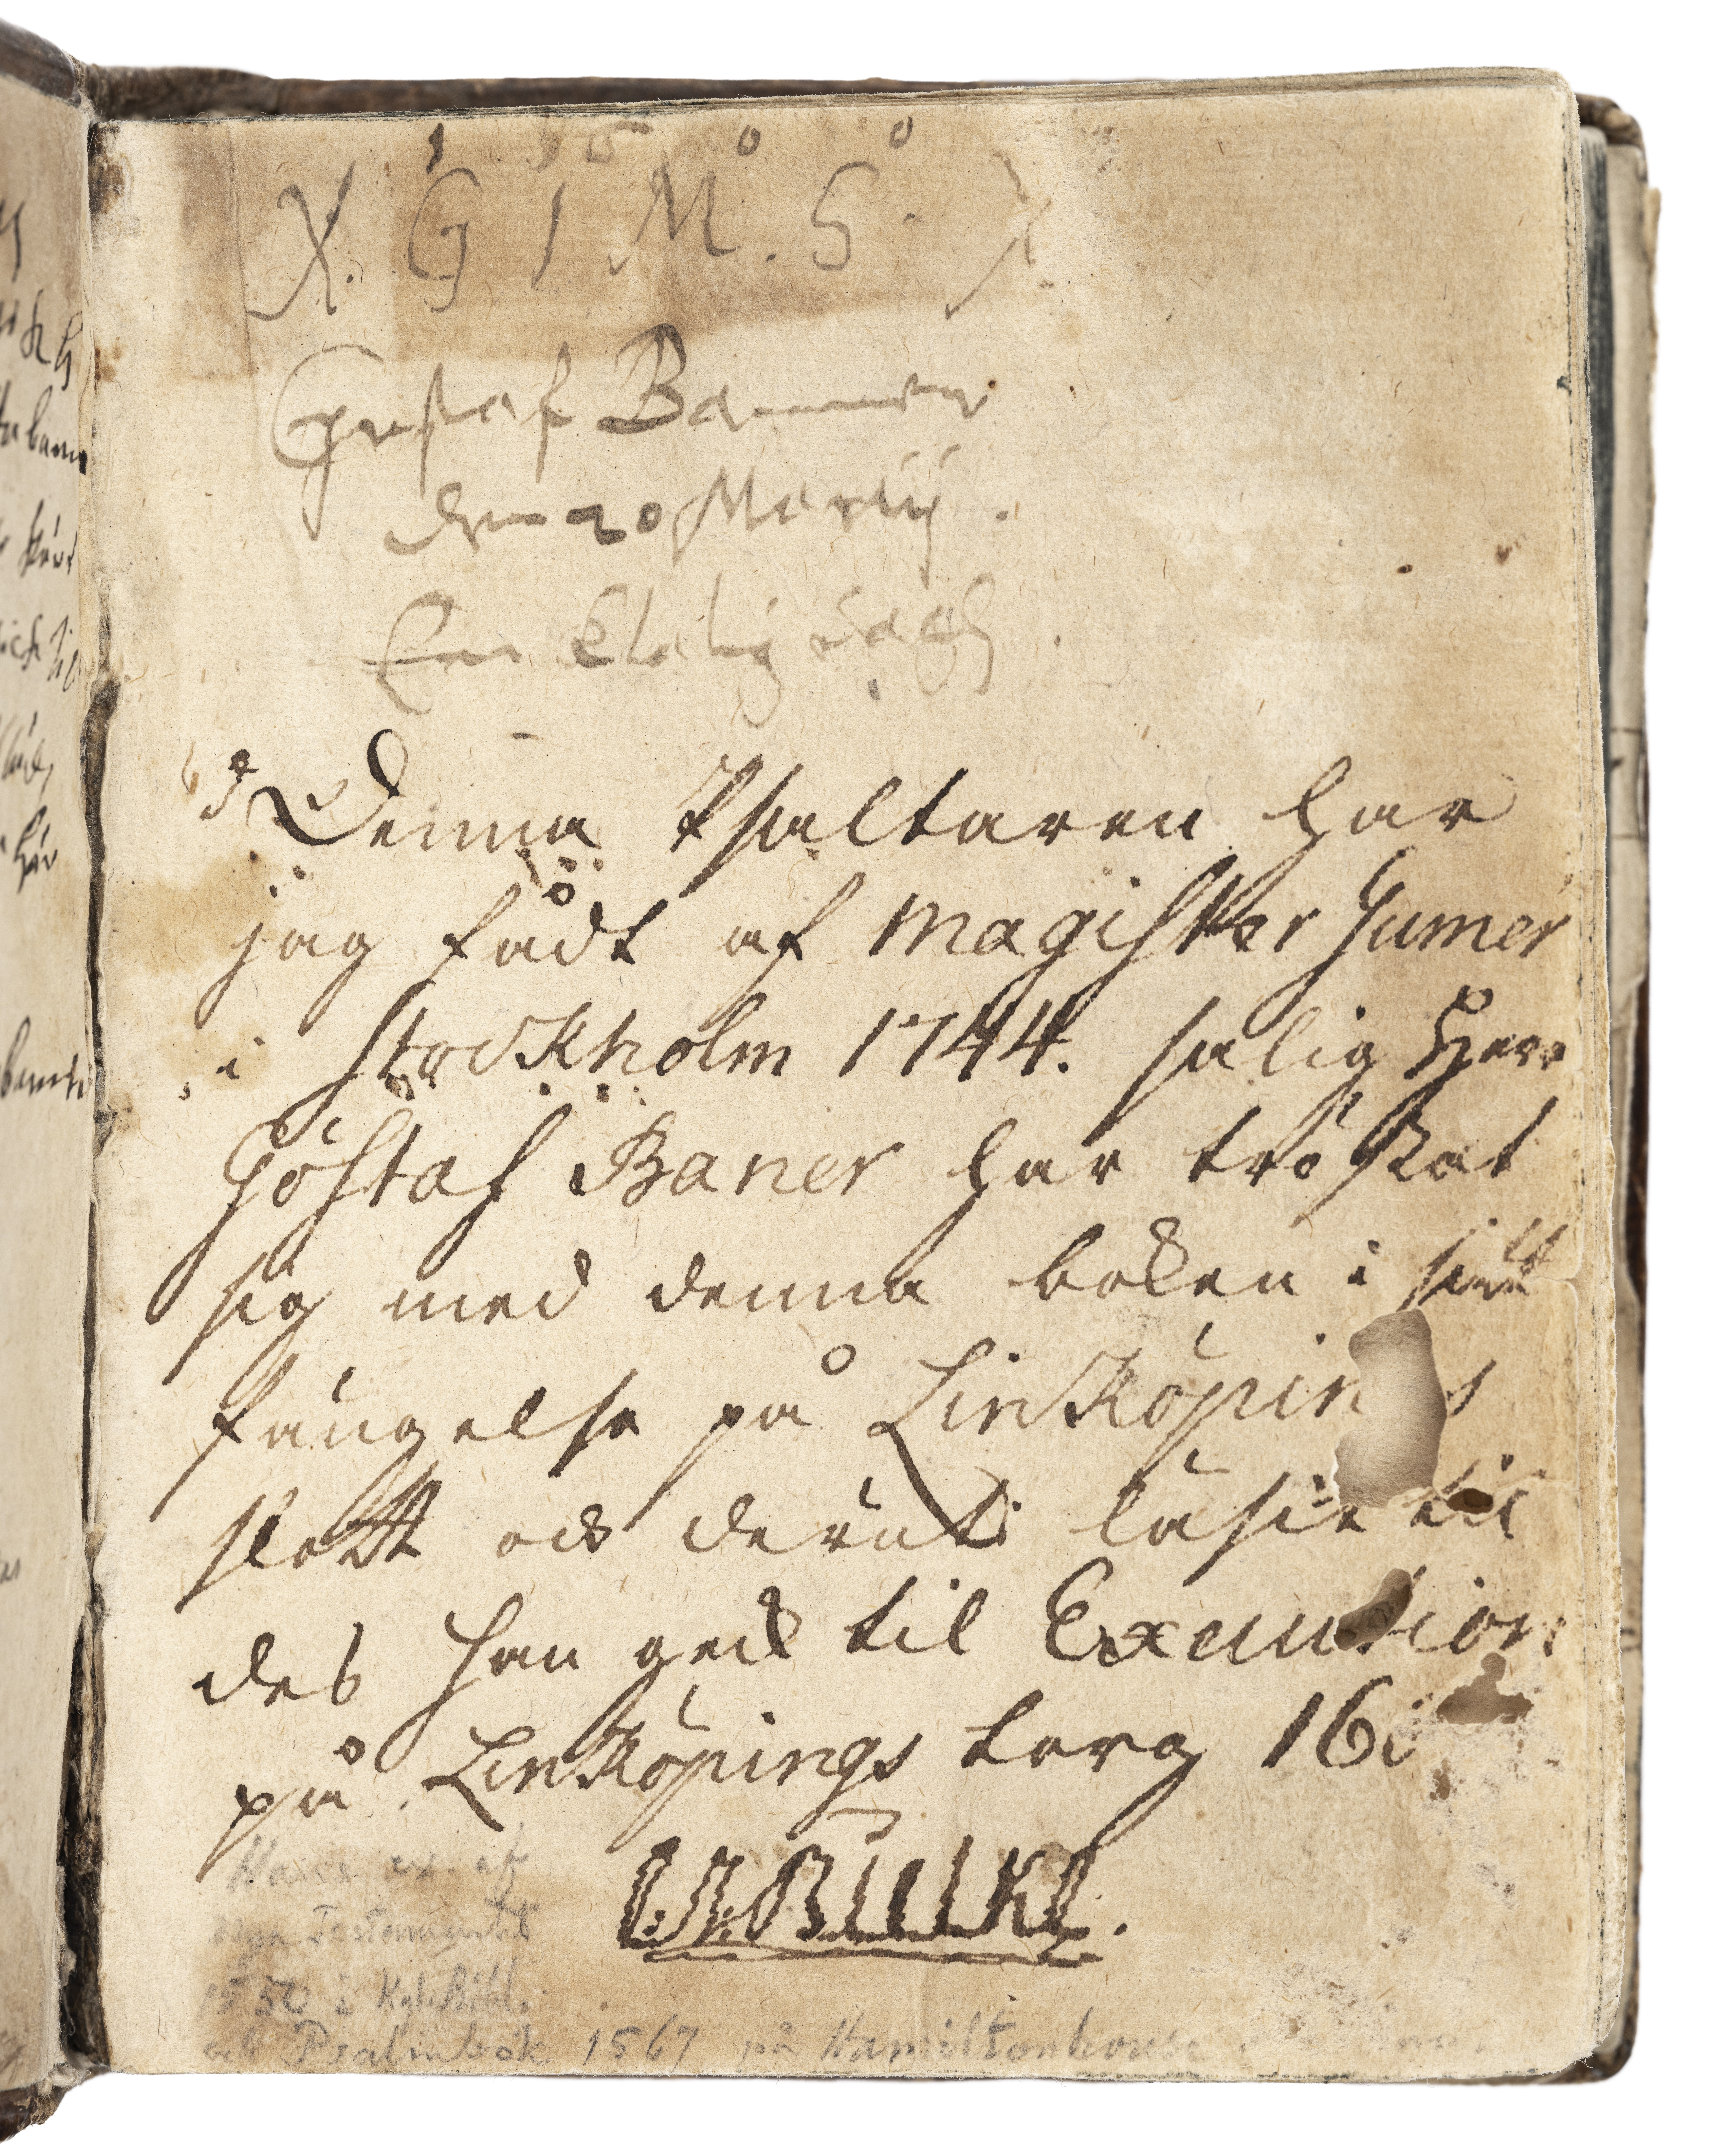 G I M. S.
Gustaf Banner
den 20 Martij.
Een klalig dagh
Denna Psaltaren har
jag fådt af Magister Humer
i Stockholm 1744. salig Herr
Göstaf Baner har tröstat
sig med denna boken i sitt
fängelse på Linköpin s
slott och deruti läsit til
des han geck til Execution
på Linköpings torg 16
Bielke.
ex. af
nya Testamentet
1550 i Kgl. Bibl.
och Psalmbok 1567 på